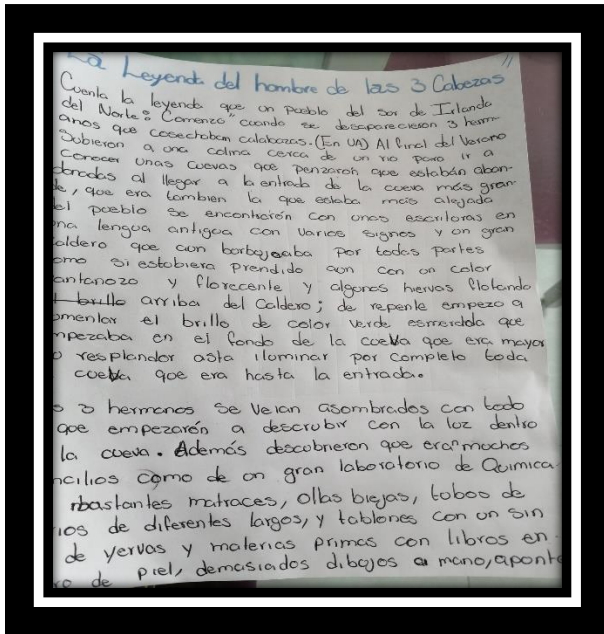 La Leyenda del hombre de las 3 Cabezas
Cuenta la leyenda que un pueblo del sur de Irlanda
del Norte: Comenzó "cuando se desaparecieron 3 herm-
anos que cosechaban calabazas. (En UA) Al final del Verano
Subieron a una colina cerca de un rio para ir a
conocer unas cuevas que penzaron que estabán aban-
donadas al llegar a la entrada de la cueva más gran-
de, que era tambien la que estaba mas alejada
el pueblo se encontrarón con unas escrituras en
na lengua antigua con varios signos y un gran
aldero que aun borbojeaba por todas partes
omo si estobiera prendido aun con un color
antanozo y florecente y algunos hiervas flotando
arriba del Caldero; de repente empezo a
omentar el brillo de color verde esmeralda que
mpezaba en el fondo de la cueva que era mayor
o resplandor asta iluminar por completo toda
cueva que era hasta la entrada.
s 3 hermanos se veian asombrados con todo
que empezarón a descrubir con la luz dentro
la cueva. Además descubrieron que eran muchos
ncilios como de un gran laboratorio de Quimica
bastantes matraces, ollas biejas, tubos de
ios de diferentes largos, y tablones con un sin
de yervas y materias primas con libros en
ro de piel, demasiados dibujos a mano, apunt